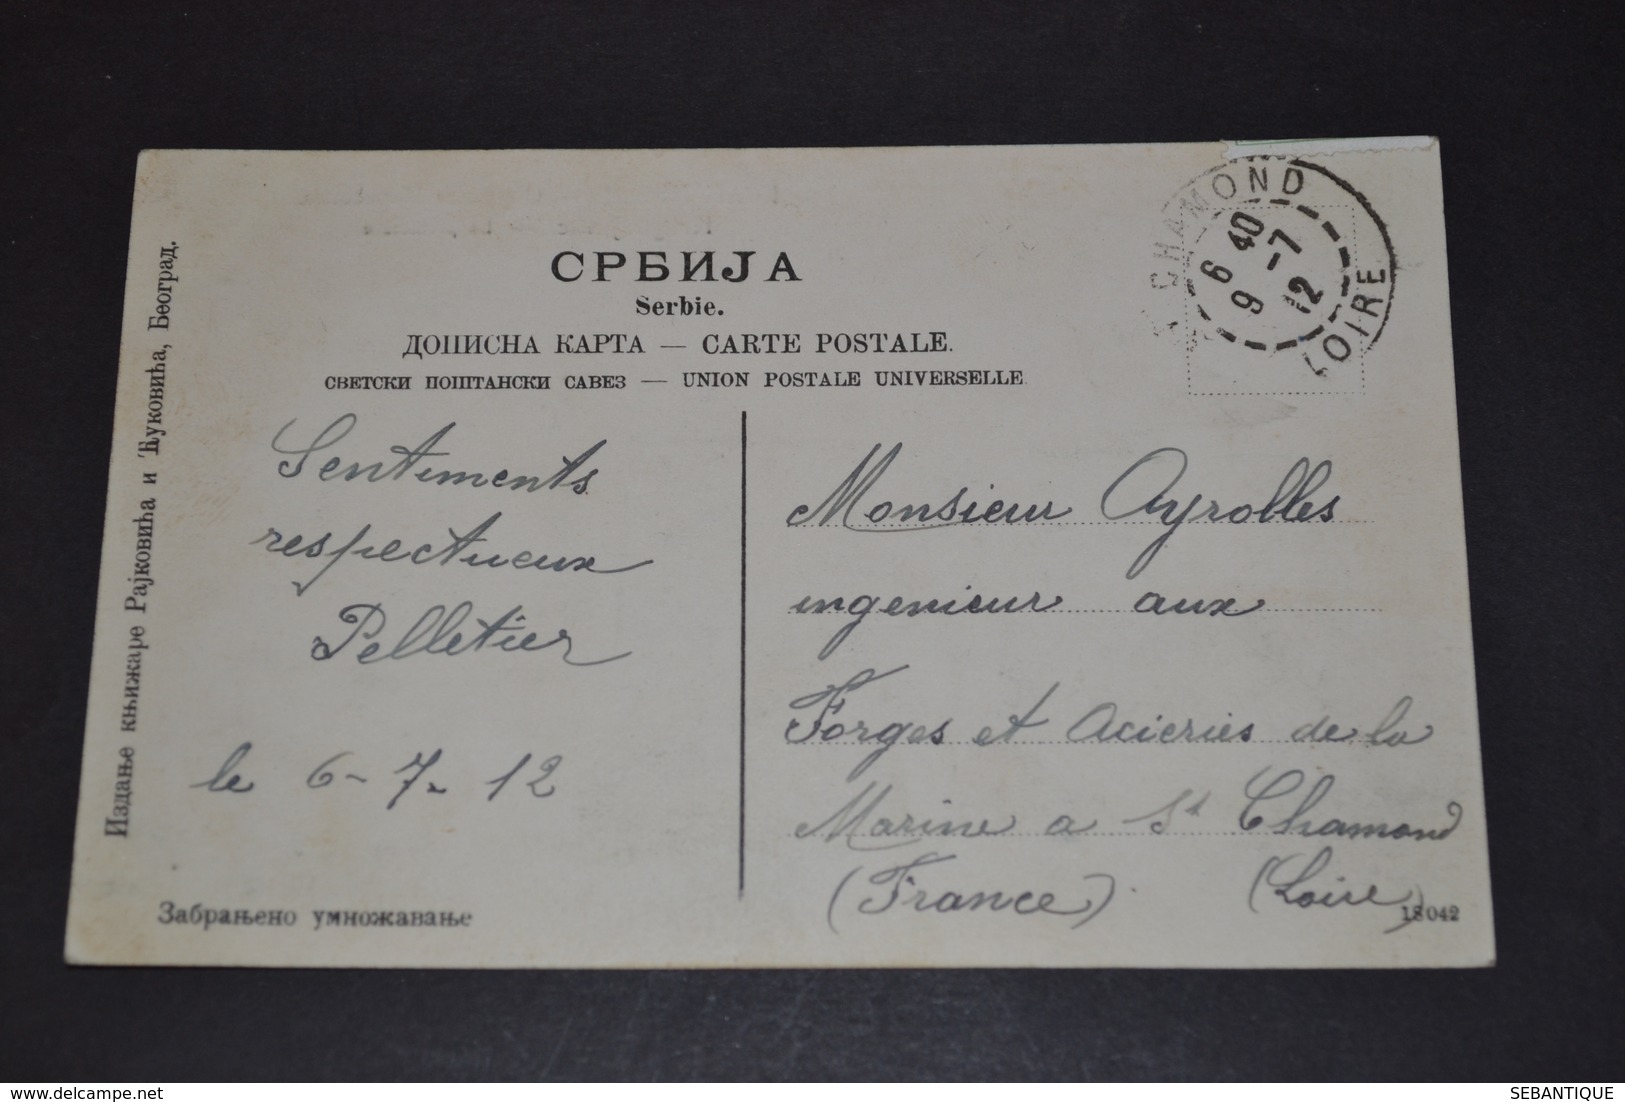 СРБИЈА
Serbie.
ДОПИСНА КАРТА — CARTE POSTALE.
СВЕТСКИ ПОШТАНСКИ САВЕЗ — UNION POSTALE UNIVERSELLE
CHAMOND
6 40
9 -7
12
LOIRE
Издање књижаре Рајковића и Ћуковића, Београд.
Sentiments
respectueux
Pelletier
le 6-7-12
Забрањено умножавање
Monsieur Ayrolles
ingenieur aux
Forges et Acieries de la
Marine a St Chamond
(France) (Loire)
18042
delcampe.net
SEBANTIQUE